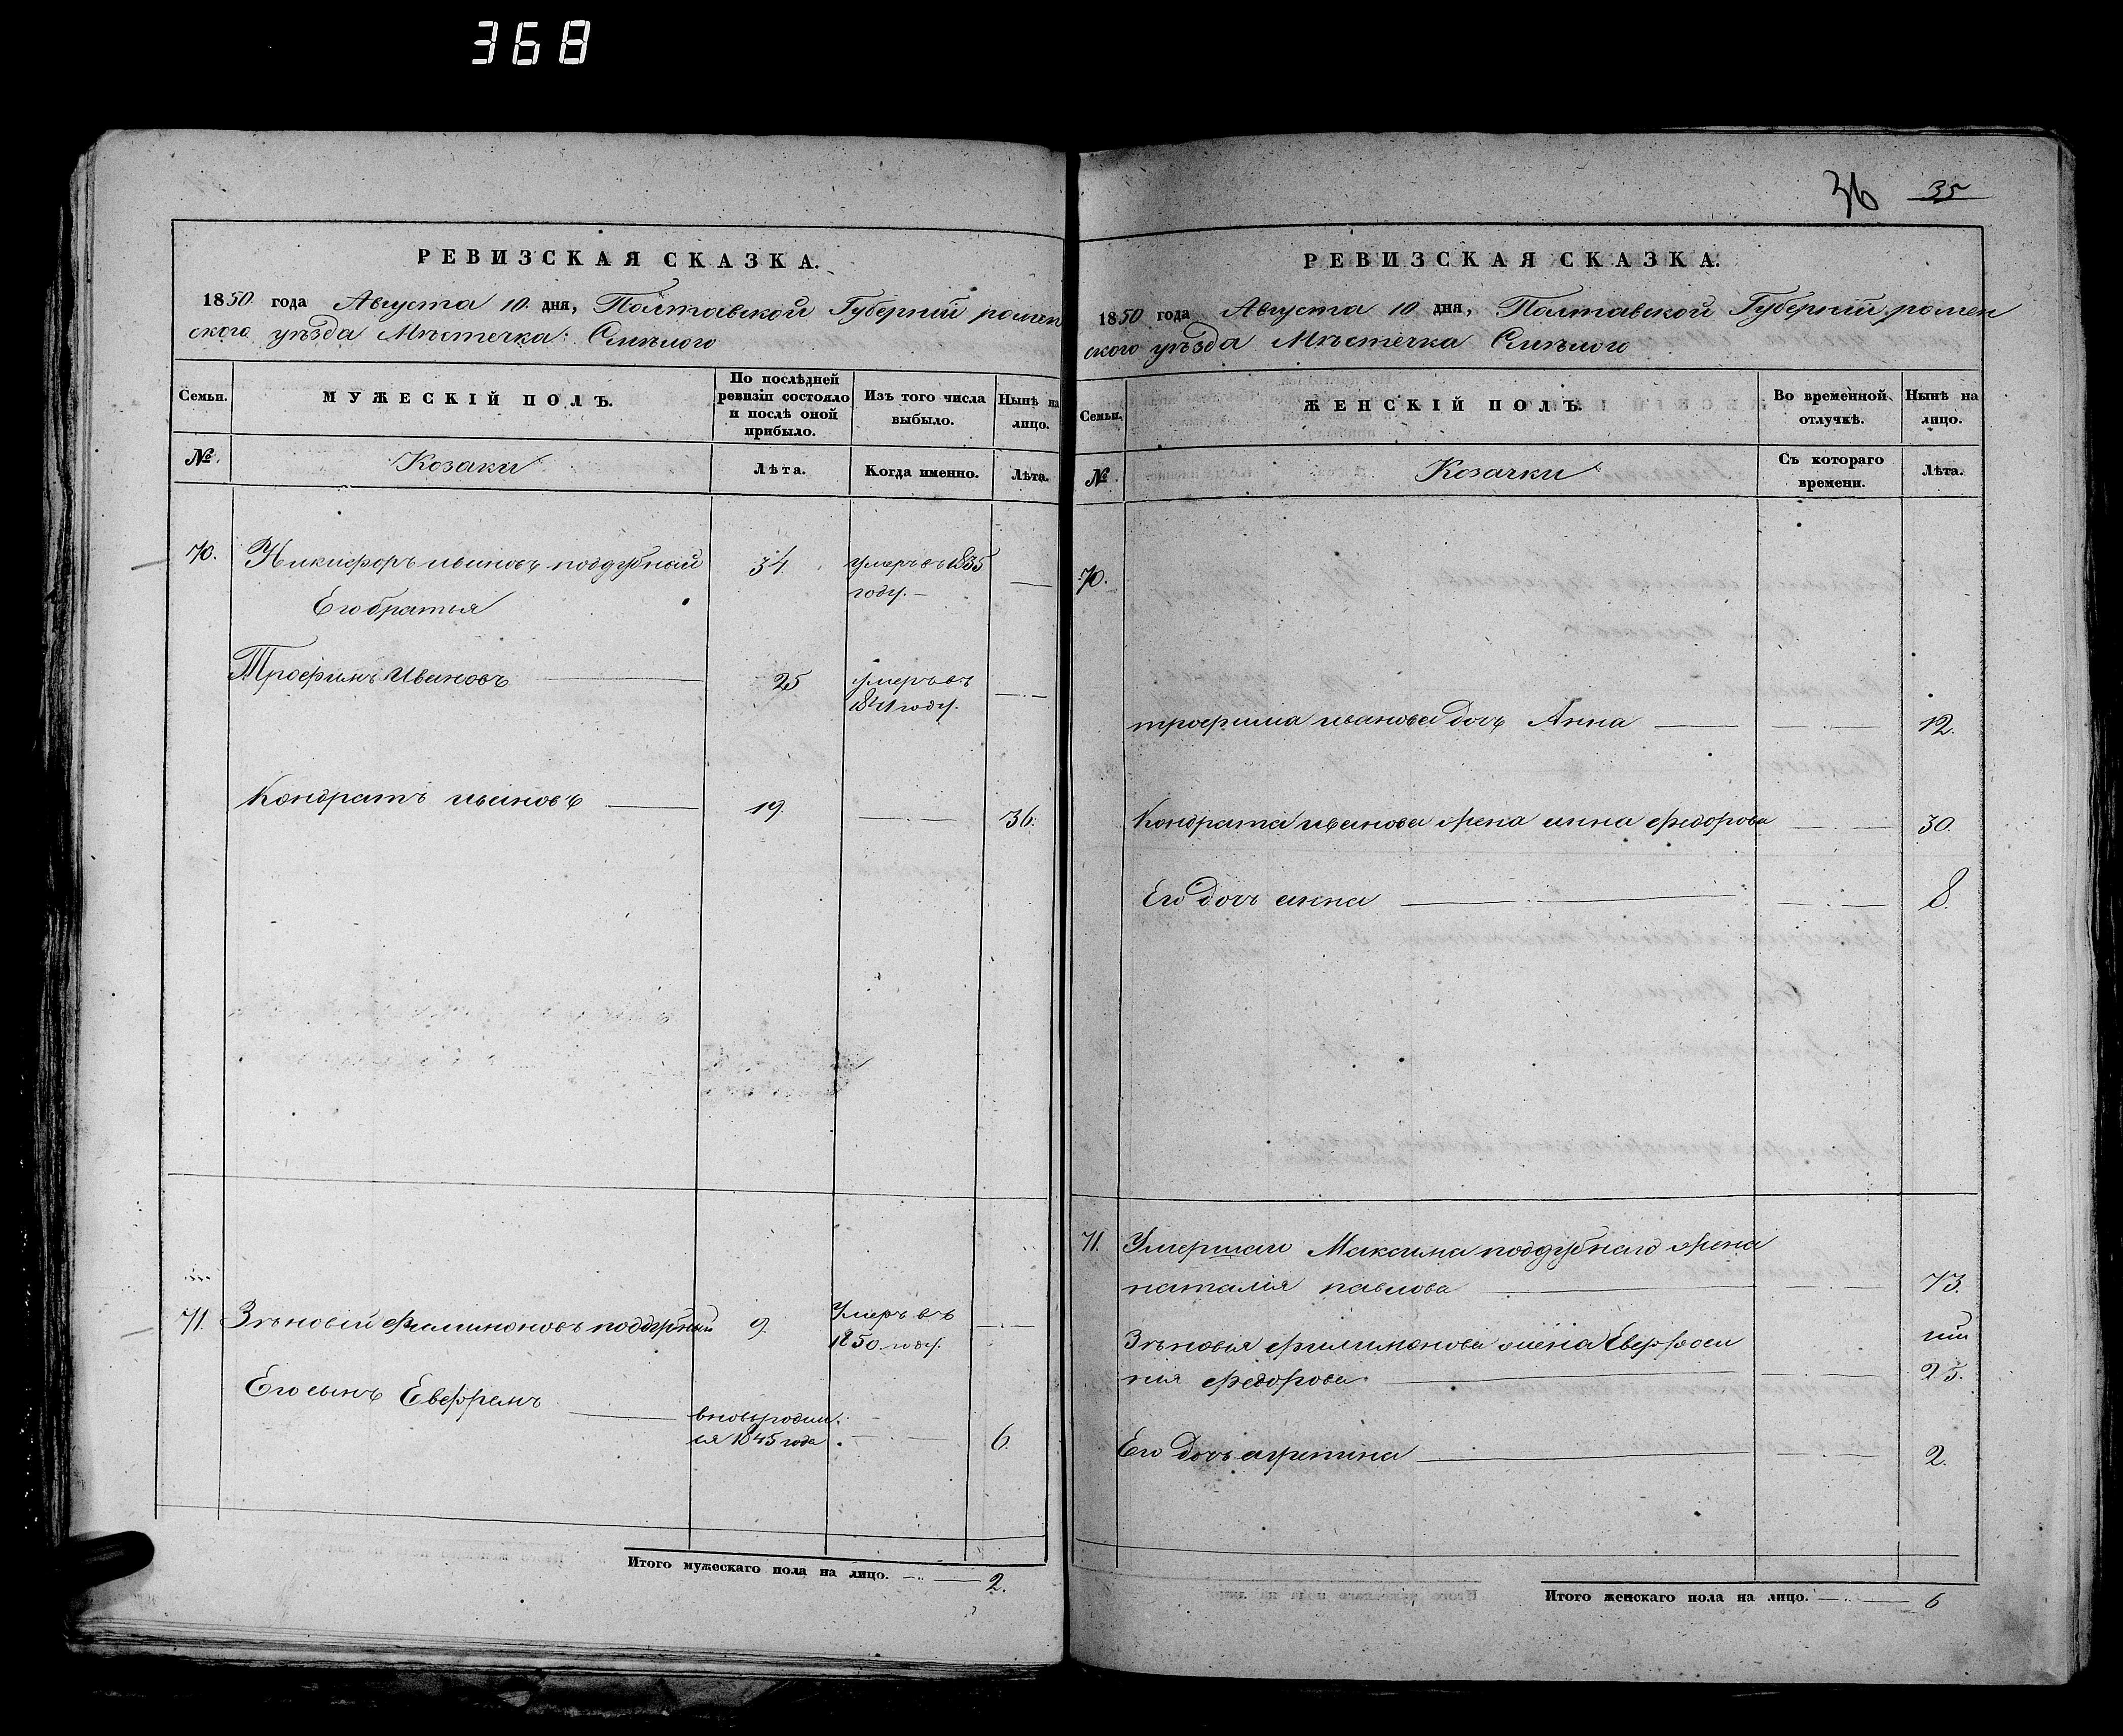 368
РЕВИЗСКАЯ СКАЗКА.
1850 года Августа 10 дня, Полтавской Губерніи ромен
ского уѣзда Мѣстечка Смѣлого
Семьи.
МУЖЕСКІЙ ПОЛЪ.
По послѣдней ревизіи состояло и послѣ оной прибыло.
Изъ того числа выбыло.
Нынѣ на лицо.
№.
Козаки
Лѣта.
Когда именно.
Лѣта.
70. Никифоръ ивановъ поддубный 34. умеръ въ 1835 —
году.—
Его братья
Трофимъ Ивановъ — 25 умеръ въ —
1841 году.
Кондратъ ивановъ — 19. — 36.
71. Зѣновій Филимоновъ поддубный 9. Умеръ въ —
1850 году.
Его сынъ Евфремъ — вновь родил
ся 1845 года. — 6.
Итого мужескаго пола на лицо. — 2.
36 35
РЕВИЗСКАЯ СКАЗКА.
1850 года Августа 10 дня, Полтавской Губерніи ромен
ского уѣзда Мѣстечка Смѣлого
Семьи.
ЖЕНСКІЙ ПОЛЪ.
Во временной отлучкѣ.
Нынѣ на лицо.
№
Козачки
Съ котораго времени.
Лѣта.
70.
трофима иванова дочь Анна — — 12.
Кондрата иванова жена анна федорова — 30.
Его дочь анна — — 8.
71. Умершаго Максима поддубнаго жена
наталія павлова — — 73.
Зѣновія филимонова жена Евфроси
нія федорова — — 25.
Его дочь агрепина — — 2.
Итого женскаго пола на лицо. — 6